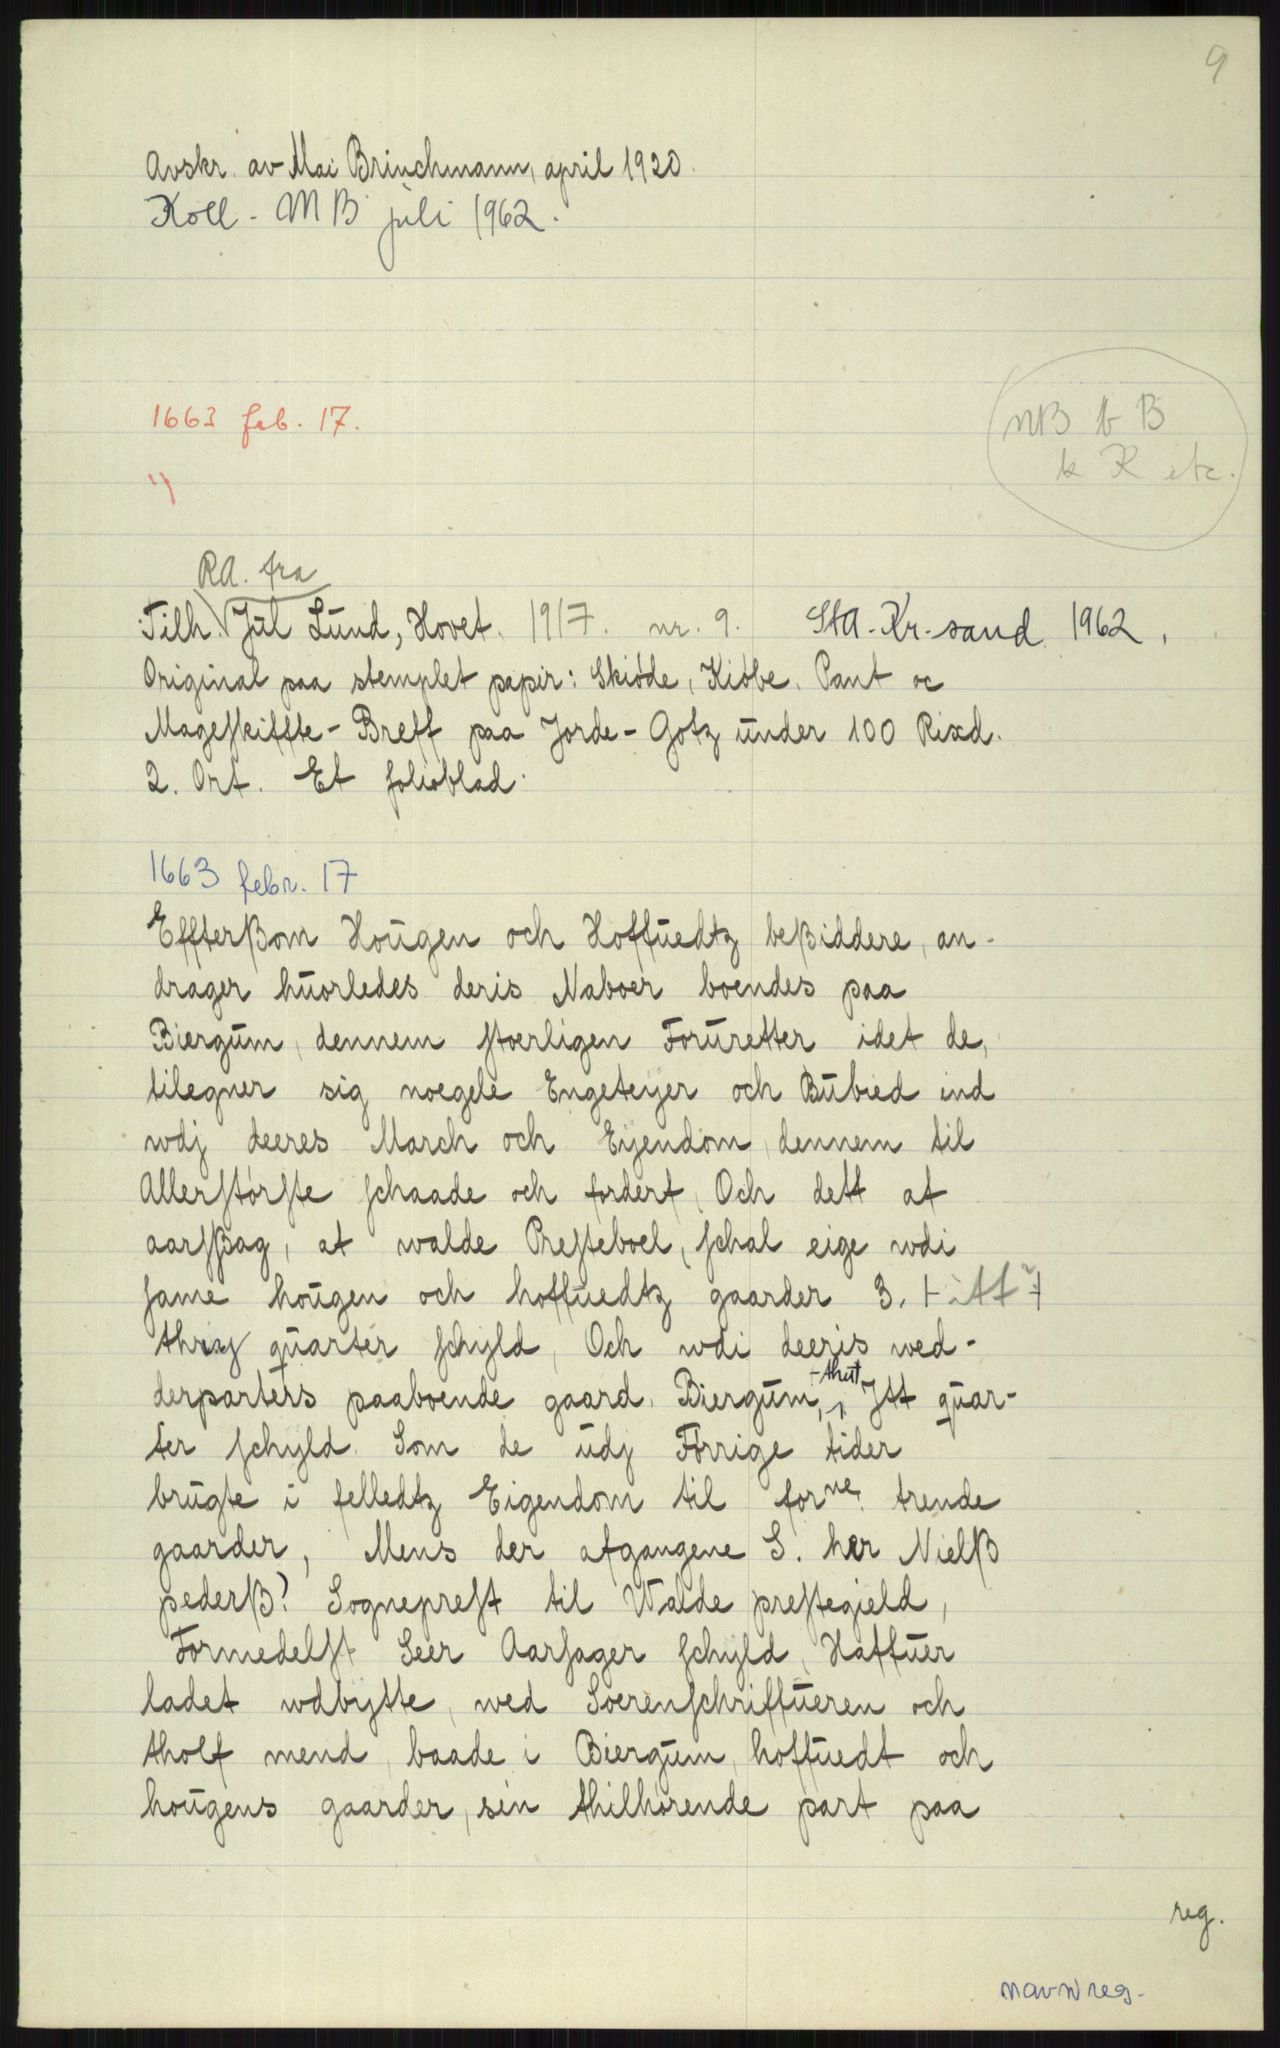 9
Avskr. av Mai Brinchmann, april 1920.
Koll - MB juli 1962.
1663 feb. 17.
NB
etc.
RA. fra
Tilh. Jul Lund, Hovet. 1917. nr. 9. StA. Kr.sand 1962.
Original paa stemplet papir: Skiöde, Kiöbe, Pant oc
Mageskiffte-Breff paa Jorde-Gotz under 100 Rixd.
2. Ort. Et folioblad.
1663 febr. 17
Effterßom Hougen och Hoffuedtz beßiddere, an-
drager huorledes deris Naboer boendes paa
Biergum, dennem storligen Foruretter idet de,
tilegner sig noegele Engeteyer och Bubied ind
wdj deeres March och Eyendom, dennem til
Allerstörste schaade och fordert, Och dett at
aarsßag, at walde Presteboel, schal eige wdi
same hougen och hoffuedtz gaarder 3.
thrij quarter schyld, Och wdi deeris wed-
derparters paaboende gaard. Biergum, Jtt quar-
ter schyld. Som de udj Förrige tider
brugte i felledtz Eigendom til forne. trende
gaarder, Mens der afgangene S. her Nielß
pederß? Sogneprest til Walde prestegield,
Formedelst Seer Aarsager schyld, Haffuer
ladet wdbytte, wed Soerenschriffueren och
tholf mend, baade i Biergum, hoffuedt och
hougens gaarder, sin thilhörende part paa
reg.
navnreg.